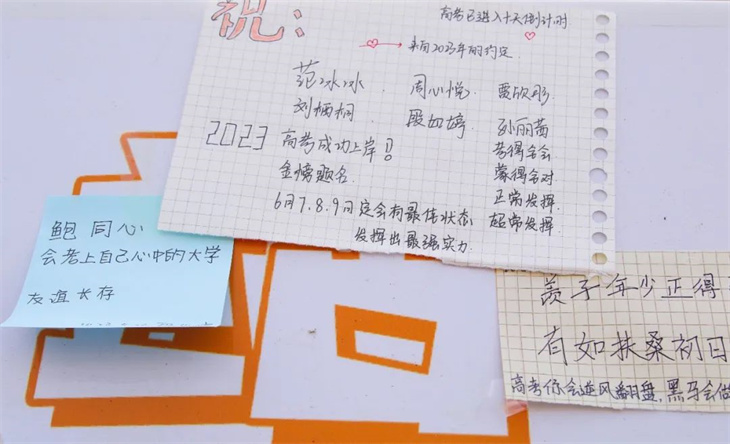 祝：
高考已进入十天倒计时
来自2023年的约定
范冰冰 周心悦 贾欣彤
刘栖桐 段如婷 孙丽茜
2023 高考成功上岸!
金榜题名
考得全会
蒙得全对
正常发挥
超常发挥
6月7.8.9日定会有最佳状态
发挥出最强实力
鲍同心
会考上自己心中的大学
友谊长存
羡子年少正得
有如扶桑初日
高考你会逆风翻盘,黑马会做